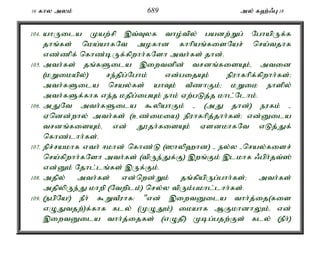 16 கால அலம் 689 அல் கஹ்ஃபு 18
104. யாருடைய முயற்சி இவ்வுலக வாழ்வில் பயனற்றுப் போயிருக்க
தாங்கள் மெய்யாகவே அழகான காரியங்களையேச் செய்வதாக
எண்ணிக் கொண்டிருக்கிறார்களோ அவர்கள் தான்.
105. அவர்கள் தங்களுடைய இறைவனின் வசனங்களையும், அவனை
(மறுமையில்) சந்திப்போம் என்பதையும் நிராகரிக்கிறார்கள்;
அவர்களுடைய செயல்கள் யாவும் வீணாகும்; மறுமை நாளில்
அவர்களுக்காக எந்த மதிப்பையும் நாம் ஏற்படுத்த மாட்டோம்.
106. அதுவே அவர்களுடைய கூலியாகும் - (அது தான்) நரகம் -
ஏனென்றால் அவர்கள் (உண்மையை) நிராகரித்தார்கள்; என்னுடைய
வசனங்களையும், என் தூதர்களையும் ஏளனமாகவே எடுத்துக்
கொண்டார்கள்.
107. நிச்சயமாக எவர் ஈமான் கொண்டு (ஸாலிஹான) - நல்ல -செயல்களைச்
செய்கிறார்களோ அவர்கள் (விருந்துக்கு) இறங்கும் இடமாக ஃபிர்தவ்ஸ்
என்னும் தோட்டங்கள் இருக்கும்.
108. அதில் அவர்கள் என்றென்றும் தங்கியிருப்பார்கள்; அவர்கள்
அதிலிருந்து மாறி (வேறிடம்) செல்ல விரும்பமாட்டார்கள்.
109. (நபியே!) நீர் கூறுவீராக: "என் இறைவனுடைய வார்த்தை(களை
எழுதுவதற்)க்காக கடல் (முழுதும்) மையாக ஆகுமானாலும், என்
இறைவனுடைய வார்த்தைகள் (எழுதி) முடிப்பதற்குள் கடல் (நீர்)